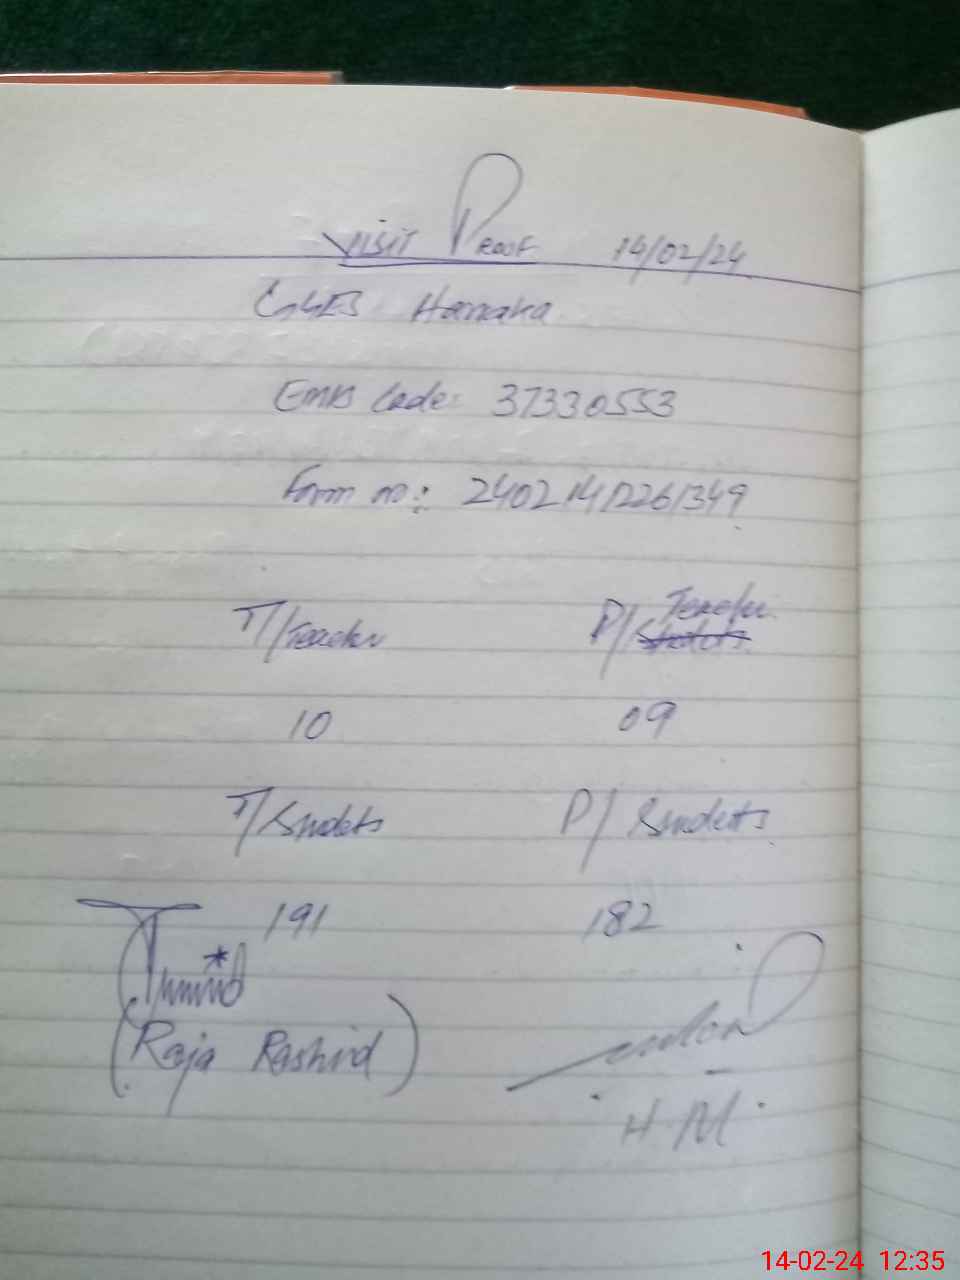 Visit Proof 14/02/24
GGES Harraka
EMIS Code: 37330553
Form no: 24021412261349
T/Teacher P/Teacher
10 09
T/Students P/Students
191 182
(Raja Rashid)
H.M.
14-02-24 12:35